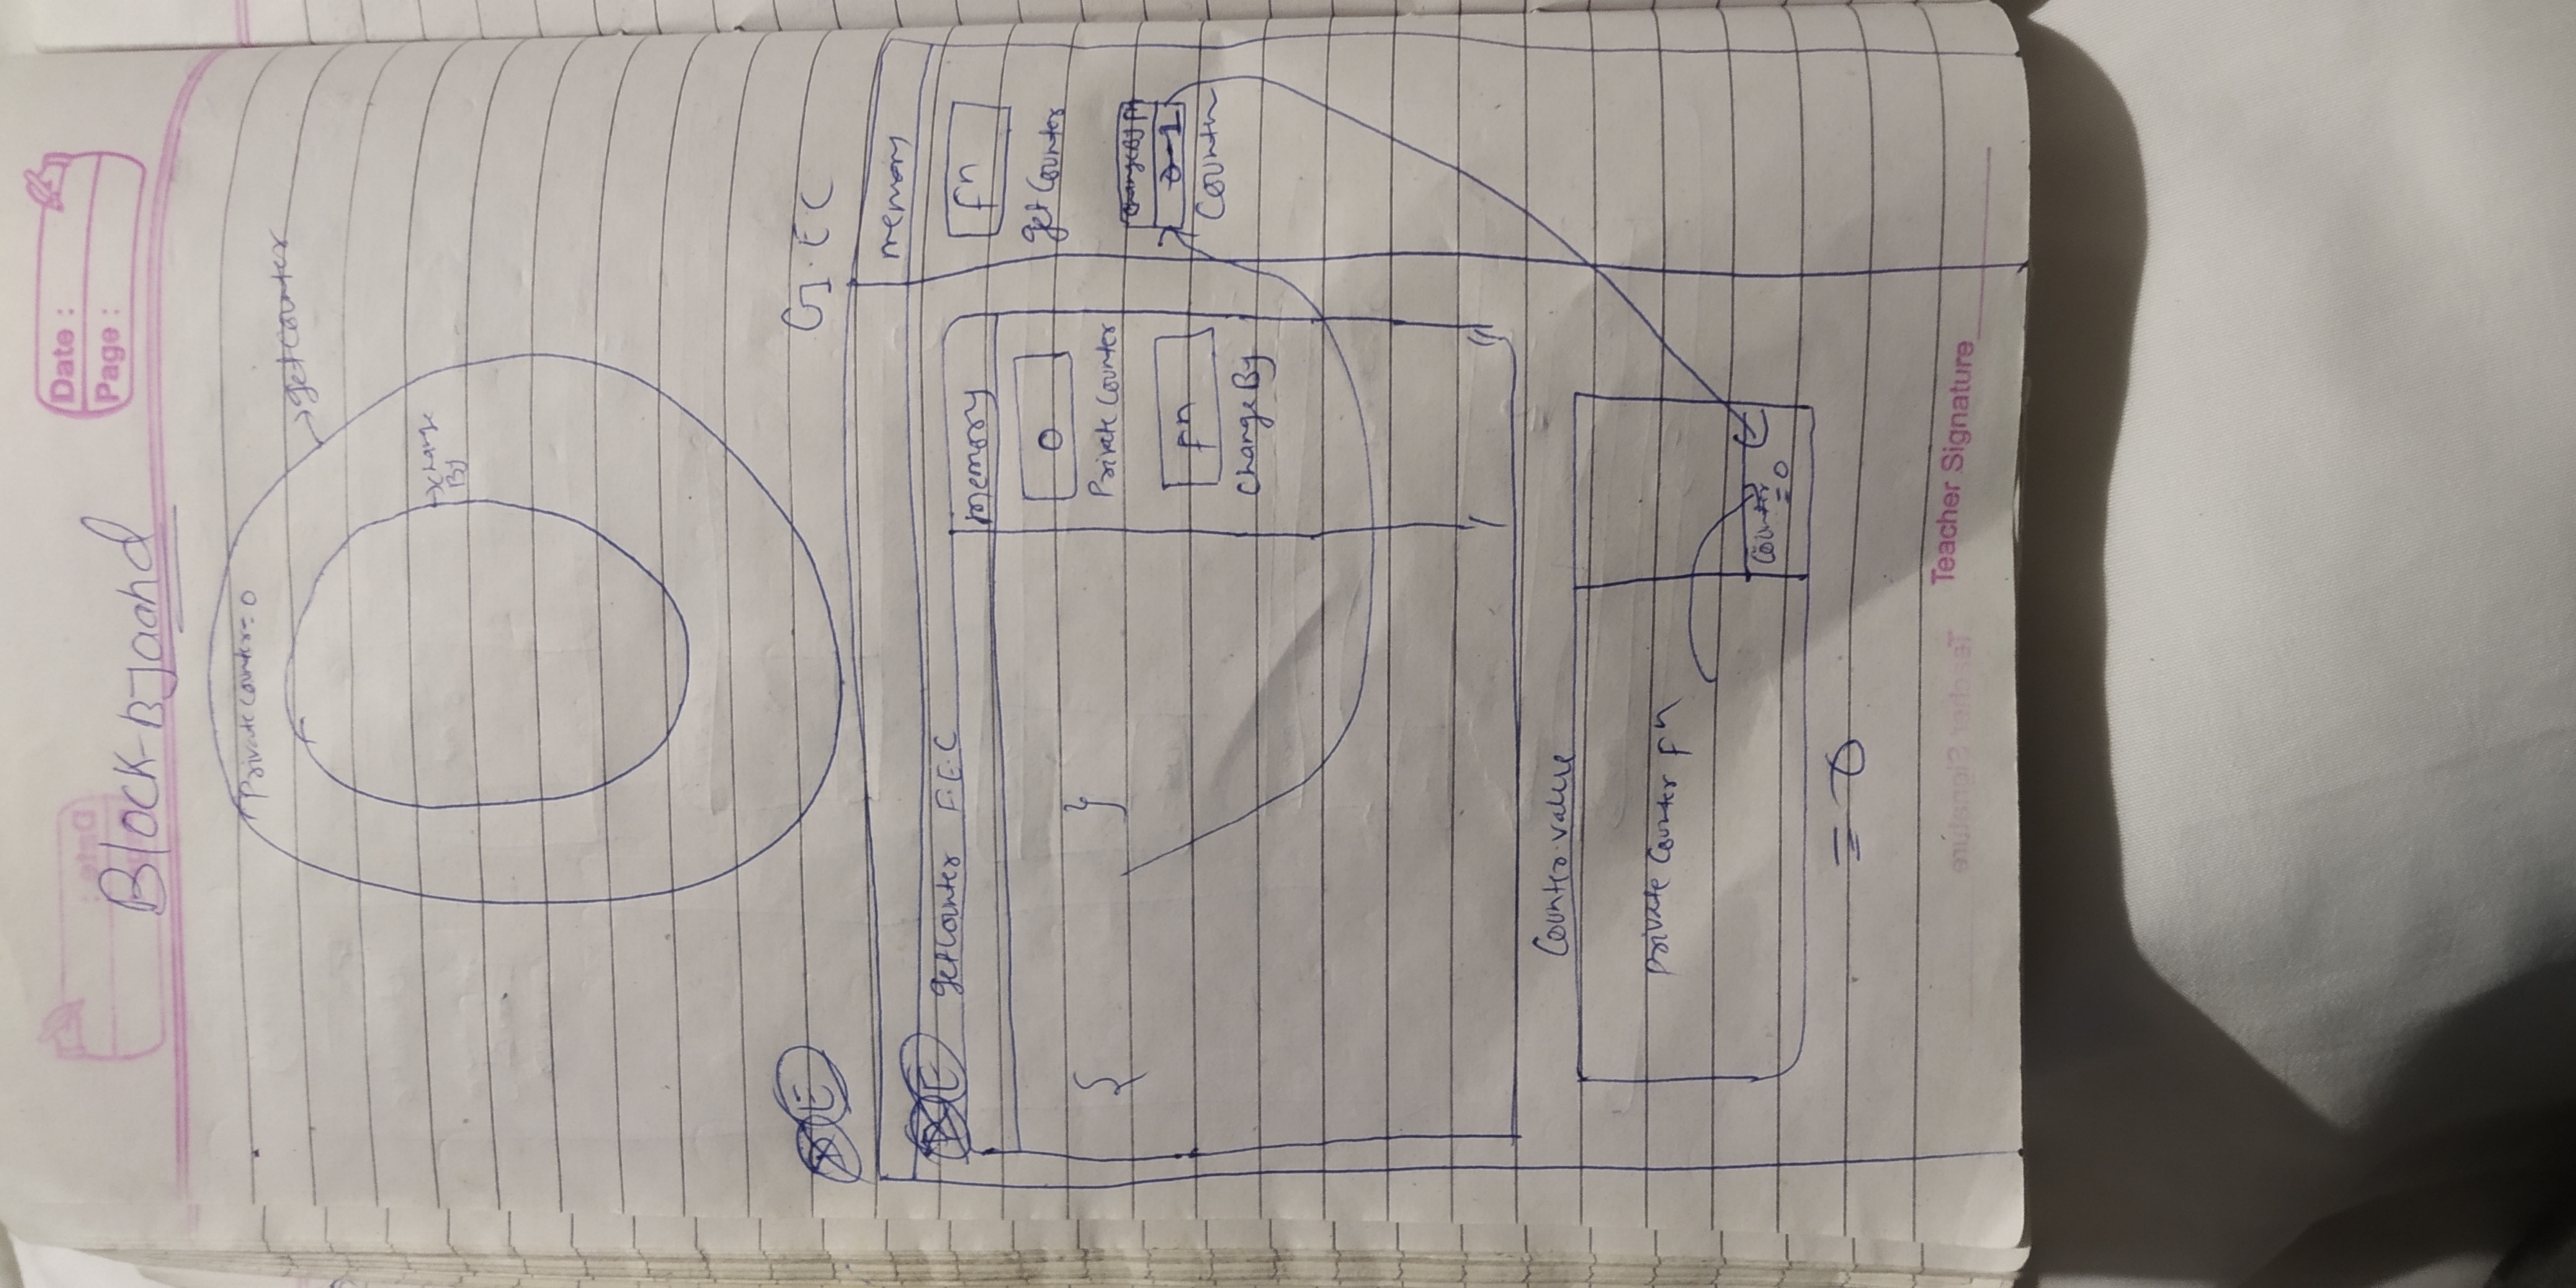 Date :
Page :
Block-Byoahd
Private Counter = 0
getCounter
change
By
G.E.C
memory
fn
getCounter
getCounter F.E.C
Memory
0
Private Counter
fn
ChangeBy
{ }
0 1
Counter
Counter.value
private Counter fn
Counter
= 0
= 0
Teacher Signature